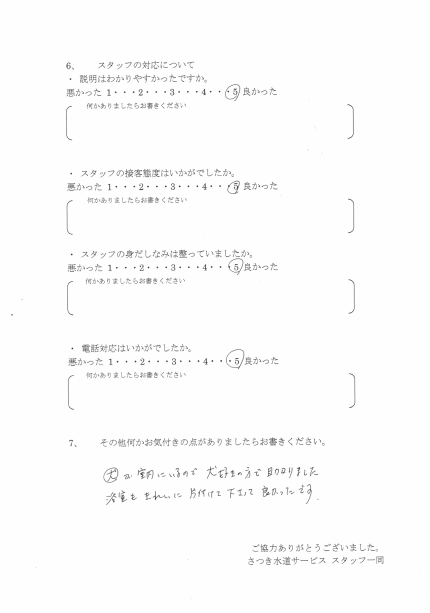 6、　スタッフの対応について
・ 説明はわかりやすかったですか。
悪かった 1・・・2・・・3・・・4・・・5 良かった
何かありましたらお書きください
・ スタッフの接客態度はいかがでしたか。
悪かった 1・・・2・・・3・・・4・・・5 良かった
何かありましたらお書きください
・ スタッフの身だしなみは整っていましたか。
悪かった 1・・・2・・・3・・・4・・・5 良かった
何かありましたらお書きください
・ 電話対応はいかがでしたか。
悪かった 1・・・2・・・3・・・4・・・5 良かった
何かありましたらお書きください
7、　その他何かお気付きの点がありましたらお書きください。
犬が室内にいるので 犬好きの方で 助かりました
浴室も きれいに 片付けて下さって 良かったです.
ご協力ありがとうございました。
さつき水道サービス スタッフ一同